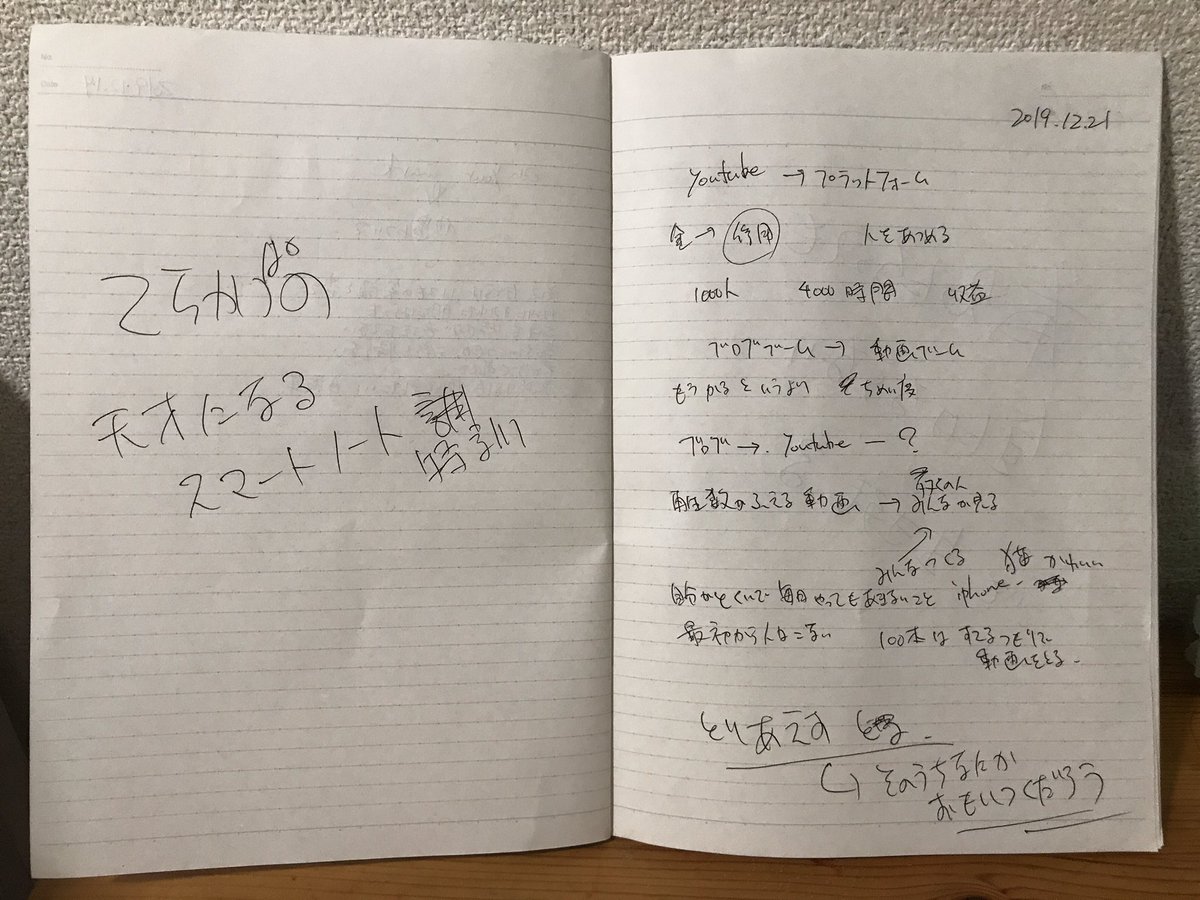 天才になる
スマートノート
2019.12.21
Youtube → プラットフォーム
金 → 信用 人をあつめる
1000人 4000時間 収益
ブログブーム → 動画ブーム
もうかるというより
ブログ → Youtube ー ?
再生数がふえる動画 → みんなが見る
みんなつくる 猫 かわいい
自分がとくいで毎日やってもあきないこと iphone
最初から人はこない 100本はすてるつもりで
動画をとる.
とりあえず
↳ そのうちなにか
おもいつくだろう